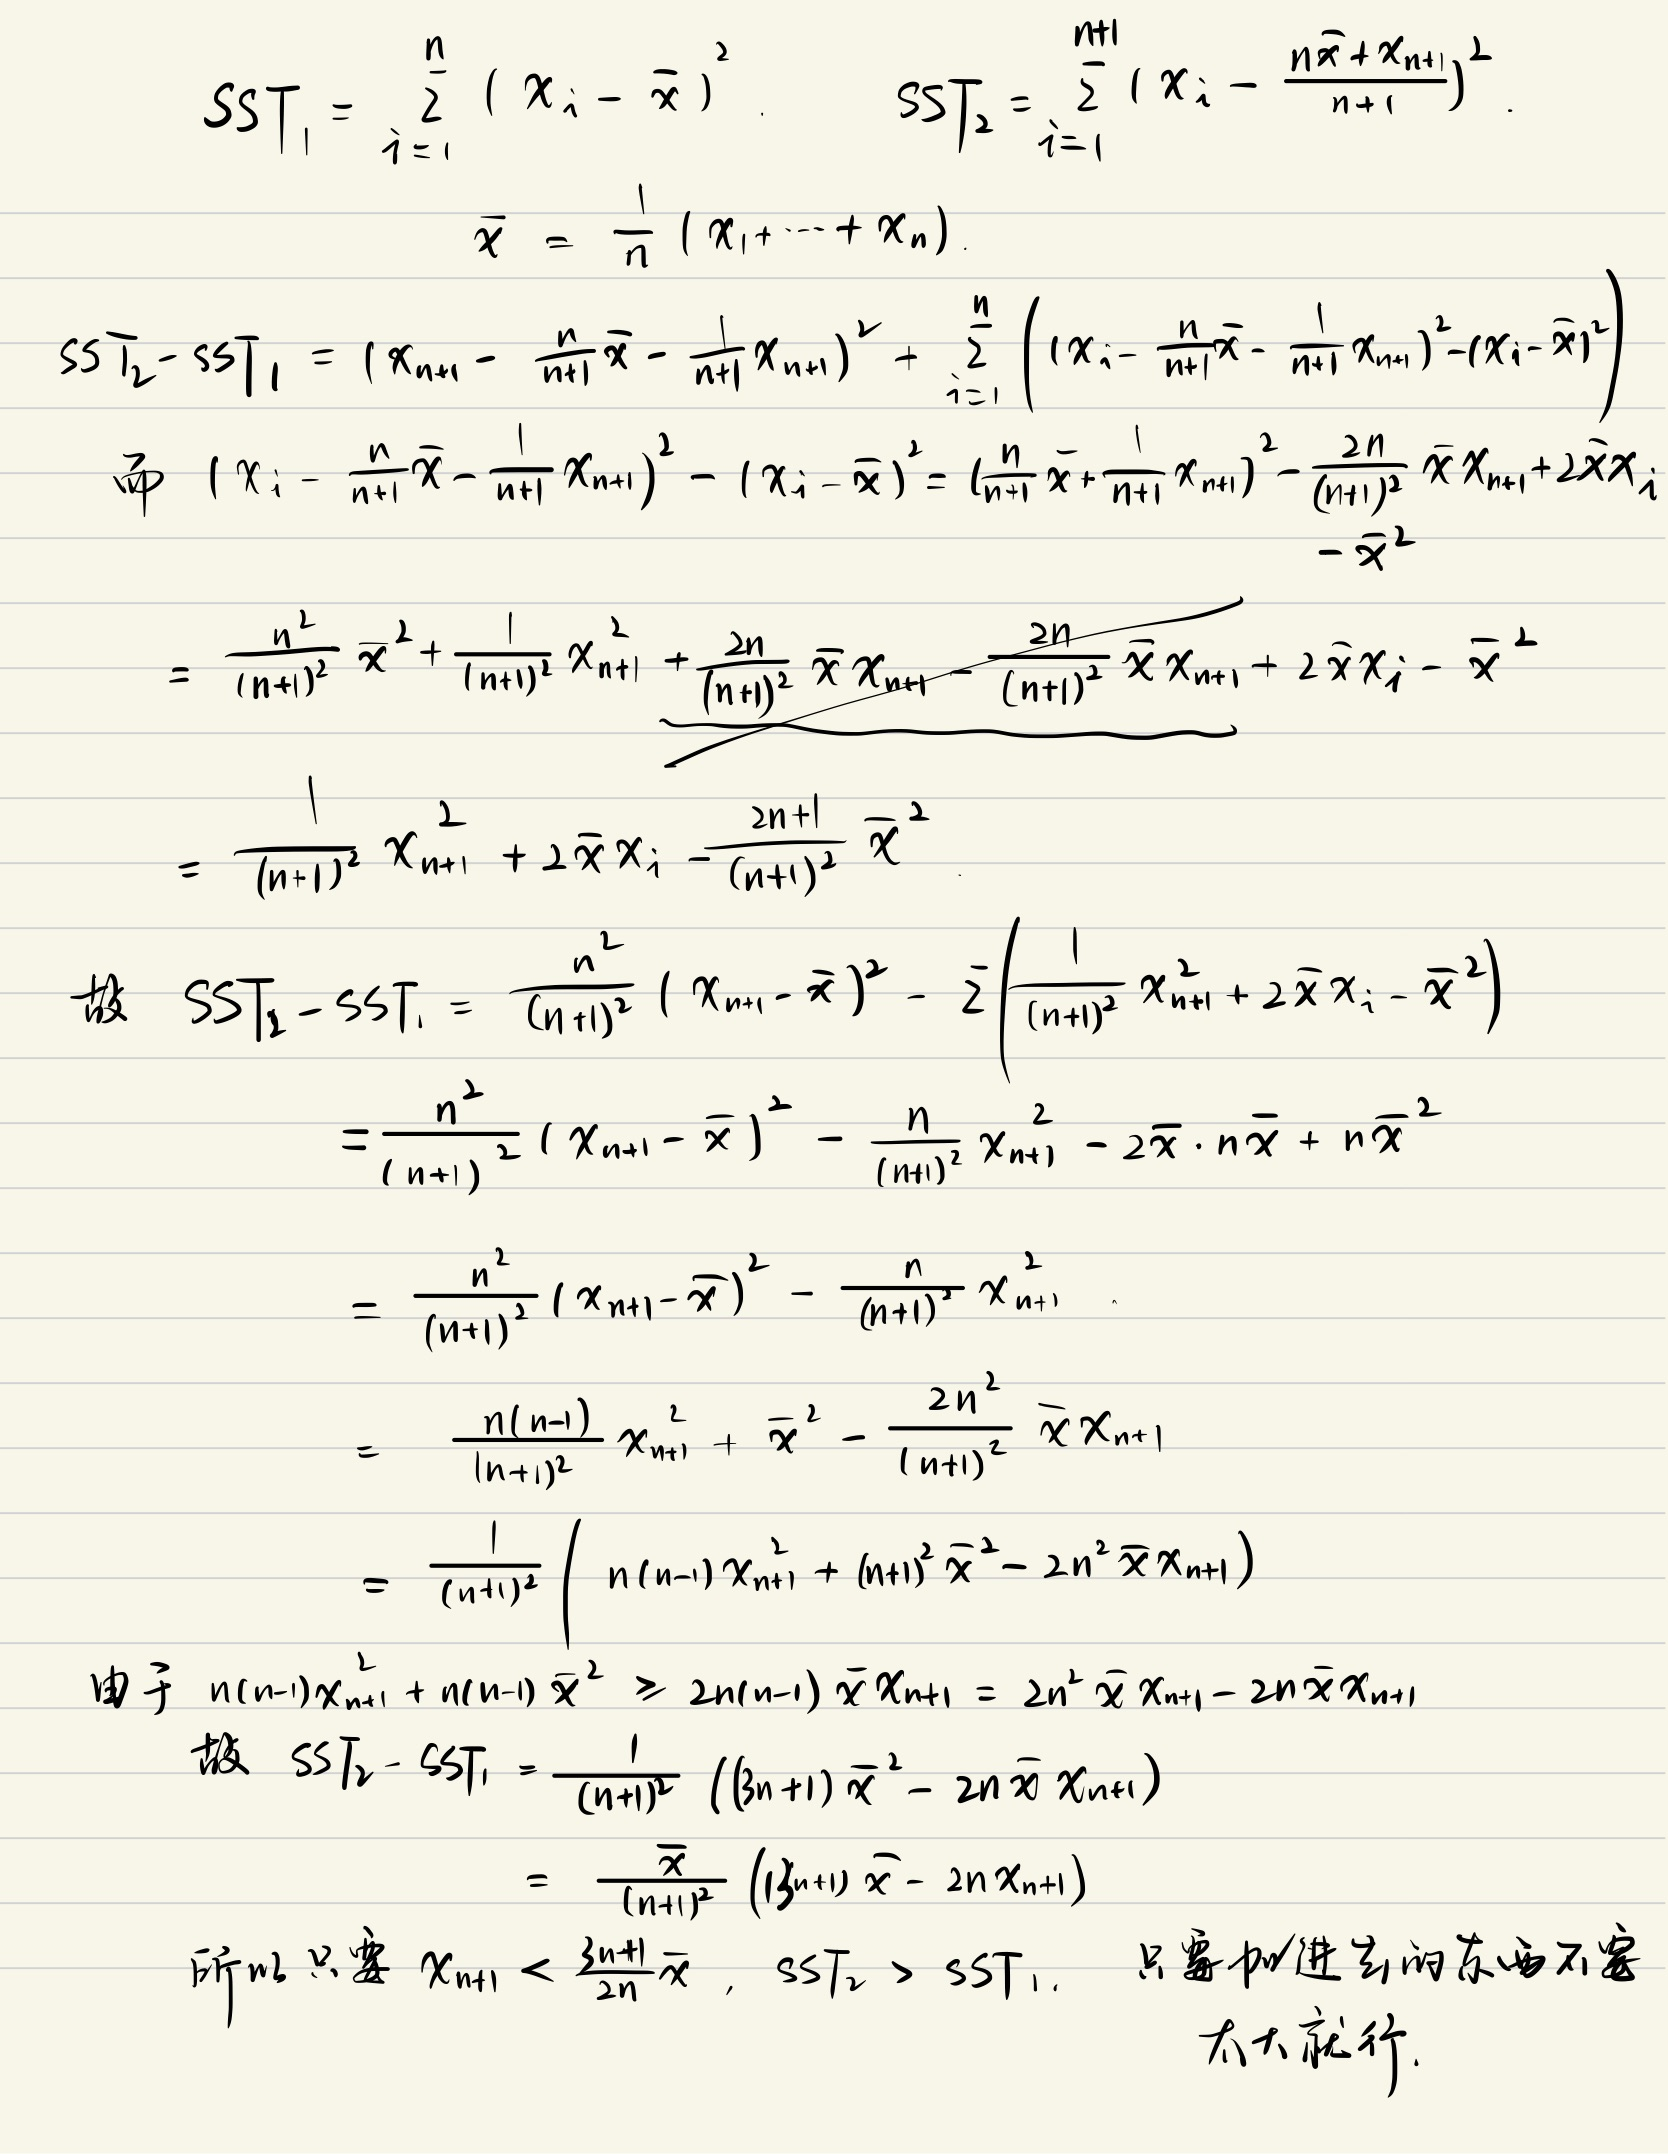 SST₁ = Σ_{i=1}^{n} (x_i − x̄)². SST₂ = Σ_{i=1}^{n+1} (x_i − (n x̄ + x_{n+1})/(n+1))².
x̄ = 1/n (x₁ + ⋯ + x_n).
SST₂ − SST₁ = (x_{n+1} − n/(n+1) x̄ − 1/(n+1) x_{n+1})² + Σ_{i=1}^{n} ((x_i − n/(n+1) x̄ − 1/(n+1) x_{n+1})² − (x_i − x̄)²)
而 (x_i − n/(n+1) x̄ − 1/(n+1) x_{n+1})² − (x_i − x̄)² = (n/(n+1) x̄ + 1/(n+1) x_{n+1})² − 2n/(n+1)² x̄ x_{n+1} + 2x̄ x_i
− x̄²
= n²/(n+1)² x̄² + 1/(n+1)² x²_{n+1} + 2n/(n+1)² x̄ x_{n+1} − 2n/(n+1)² x̄ x_{n+1} + 2x̄ x_i − x̄²
= 1/(n+1)² x²_{n+1} + 2x̄ x_i − (2n+1)/(n+1)² x̄²
故 SST₂ − SST₁ = n²/(n+1)² (x_{n+1} − x̄)² − Σ(1/(n+1)² x²_{n+1} + 2x̄ x_i − x̄²)
= n²/(n+1)² (x_{n+1} − x̄)² − n/(n+1)² x²_{n+1} − 2x̄ · n x̄ + n x̄²
= n²/(n+1)² (x_{n+1} − x̄)² − n/(n+1)² x²_{n+1}.
= n(n−1)/(n+1)² x²_{n+1} + x̄² − 2n²/(n+1)² x̄ x_{n+1}
= 1/(n+1)² (n(n−1) x²_{n+1} + (n+1)² x̄² − 2n² x̄ x_{n+1})
由于 n(n−1) x²_{n+1} + n(n−1) x̄² ≥ 2n(n−1) x̄ x_{n+1} = 2n² x̄ x_{n+1} − 2n x̄ x_{n+1}
故 SST₂ − SST₁ = 1/(n+1)² ((3n+1) x̄² − 2n x̄ x_{n+1})
= x̄/(n+1)² ((3n+1) x̄ − 2n x_{n+1})
所以只要 x_{n+1} < (3n+1)/2n x̄, SST₂ > SST₁. 只要加进去的东西不要
太大就行.